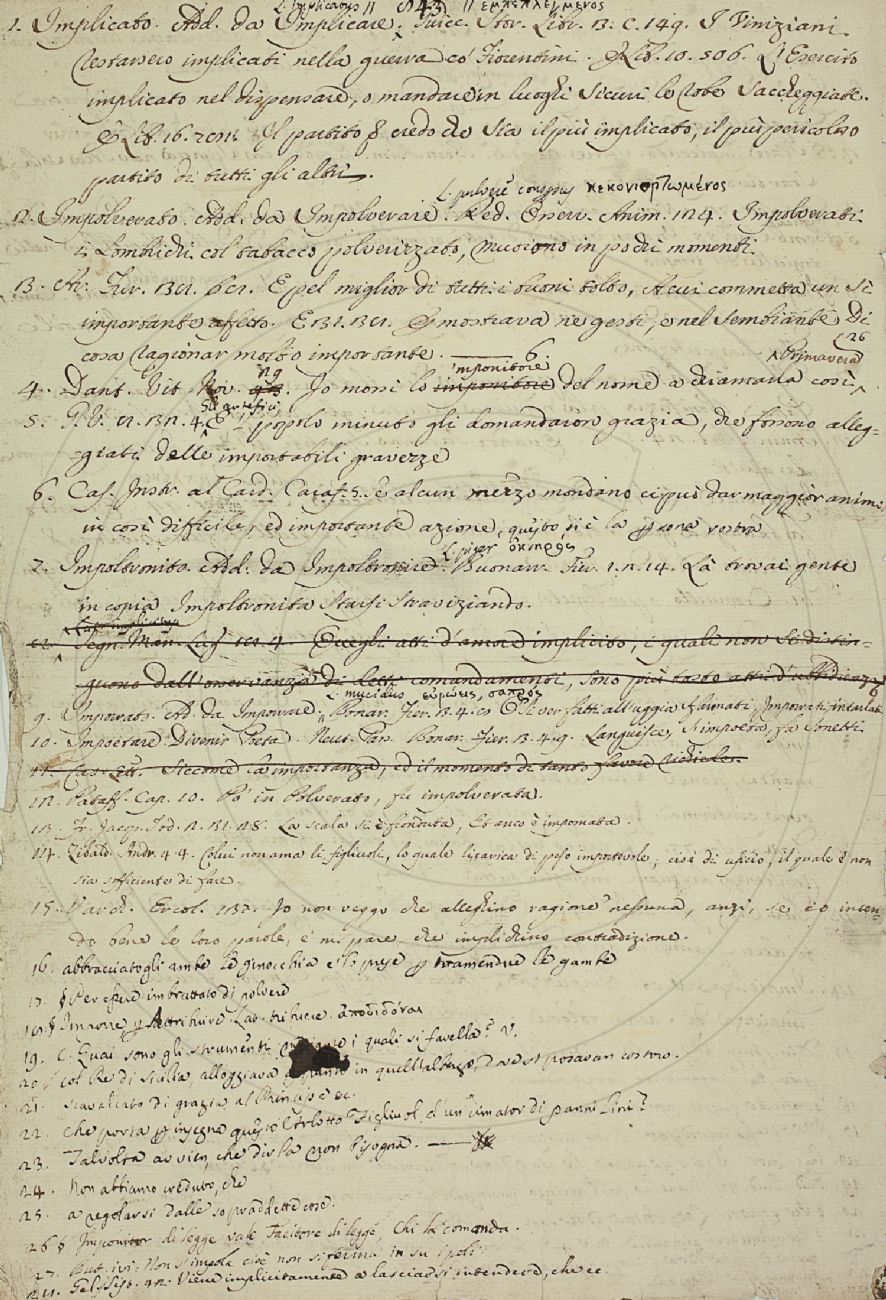 L. implicatus || (143) || ἐμπεπλεγμένος
1. Implicato. Add. da Implicare. Guicc. Stor. Libr. 13. c. 149. I Viniziani
restarsero implicati nella guerra co' Fiorentini. E Lib. 10. 506. L'Esercito
implicato nel dispensare, o mandare in luoghi sicuri le robe saccheggiate.
E Lib. 16. Il partito credo che sia il più implicato, il più pericoloso
partito di tutti gli altri.
L. pulvere κεκονιορτωμένος
2. Impolverato. Add. da Impolverare. Red. Osserv. Anim. 124. Impolverati
i Lombrichi col tabacco polverizzato, muoiono in pochi momenti.
3. Ar. Fur. E pel miglior di tutti i buoni tolto, A cui commetta un sì
importante affetto. E mostrava ne gesti, e nel sembiante Di
cosa ragionar molto importante. 6. (26
imponitore ^Primavera
4. Dant. Vit. Nov. Io mossi lo imponitore del nome a chiamarla così ^
Gli artefici
5. G.V. popolo minuto gli domandaron grazia, che fossono alleg=
giati delle importabili gravezze
6. Cas. Instr. al Card. Caraf. 5. è alcun mezzo mondano ci può dar maggior animo
in così difficile, ed importante azione, questo si è la vostra.
L. piger ὀκνηρός
7. Impoltronito. Add. da Impoltronire. Buonarr. Fier. 1. 2. 14. Là trovai gente
in copia Impoltronita starsi straviziando.
Segn. Man. E quegli atti d'amore implicito, i quali non si distin=
guono dall'osservanza di comandamenti, sono più tosto atti d'ubbidienza
L. mucidus εὐρώεις, σαπρός
9. Imporrato. Ad. da Imporrare. Bonar. Fier. 3. 4.
10. Impoetare Divenir Poeta. Bonar. Fier. 3. 4. 9. Languisce, s'impoeta, fa sonetti.
11. Cas. Lett. Siccome la importanza, ed il momento di tanto favore richiede.
12. Pataff. Cap. 10. Po' in Polverato, fu impolverata.
13. Fr. Jacop. Tod. La scala si è fronduta, Et anco è impomata.
14. Zibald. Andr. 44. Colui non ama li figliuoli, lo quale li carica di peso importevole, cioè di uficio, il quale è non
sia sofficiente di fare.
15. Varch. Ercol. 137. Io non veggo che alleghino ragione nessuna, anzi, se io inten=
do bene le loro parole, e' mi pare, che implichino contradizione.
16. abbracciatogli ambe le ginocchia e lo prese tramendue le gambe
17. § Per essere imbrattato di polvere
18. § Imporre, Attribuire. Lat. tribuere. ἀποδιδόναι
19. C. Quai sono gli strumenti i quali si favella? V.
20. col Re di Sicilia, alloggiava in quell'albergo, dove si posavan costoro.
21. scavalcato di grazia al Principe ec.
22. che porta insegna questo Carlotto Figliuol d'un cimator di panni lini?
23. Talvolta avvien, che dirla non bisogna.
24. Non abbiamo creduto, che
25. a regolarsi dalle sopraddette cose.
26 § Imponitor di legge vale Facitore di legge, Chi la comanda.
27. But. ivi: Non s'impola cioè non si ferma in su i poli.
Viene implicitamente a lasciarsi intendere, che ec.